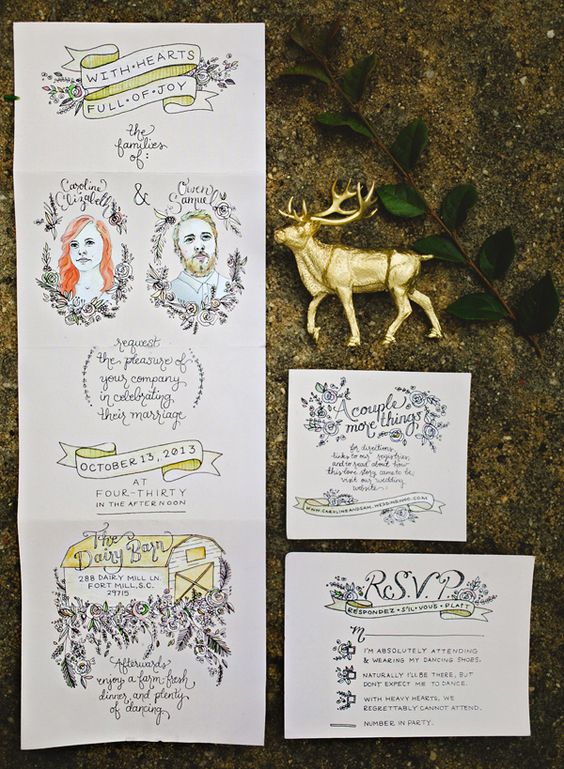 WITH • HEARTS
FULL • OF • JOY
the
families
of:
Caroline
Elizabeth
&
Owen
Samuel
request
the pleasure of
your company
in celebrating
their marriage
OCTOBER 13, 2013
AT
FOUR-THIRTY
IN THE AFTERNOON
The
Dairy Barn
288 DAIRY MILL LN.
FORT MILL, S.C.
29715
Afterwards
enjoy a farm-fresh
dinner, and plenty
of dancing.
A couple
more things
for directions,
links to our registries,
and to read about how
this love story came to be
visit our wedding
website:
WWW.CAROLINEANDSAM.WEDDINGWOO.COM
R.S.V.P.
RESPONDEZ • S'IL • VOUS • PLAIT
M
I'M ABSOLUTELY ATTENDING
& WEARING MY DANCING SHOES.
NATURALLY I'LL BE THERE, BUT
DON'T EXPECT ME TO DANCE.
WITH HEAVY HEARTS, WE
REGRETTABLY CANNOT ATTEND.
NUMBER IN PARTY.